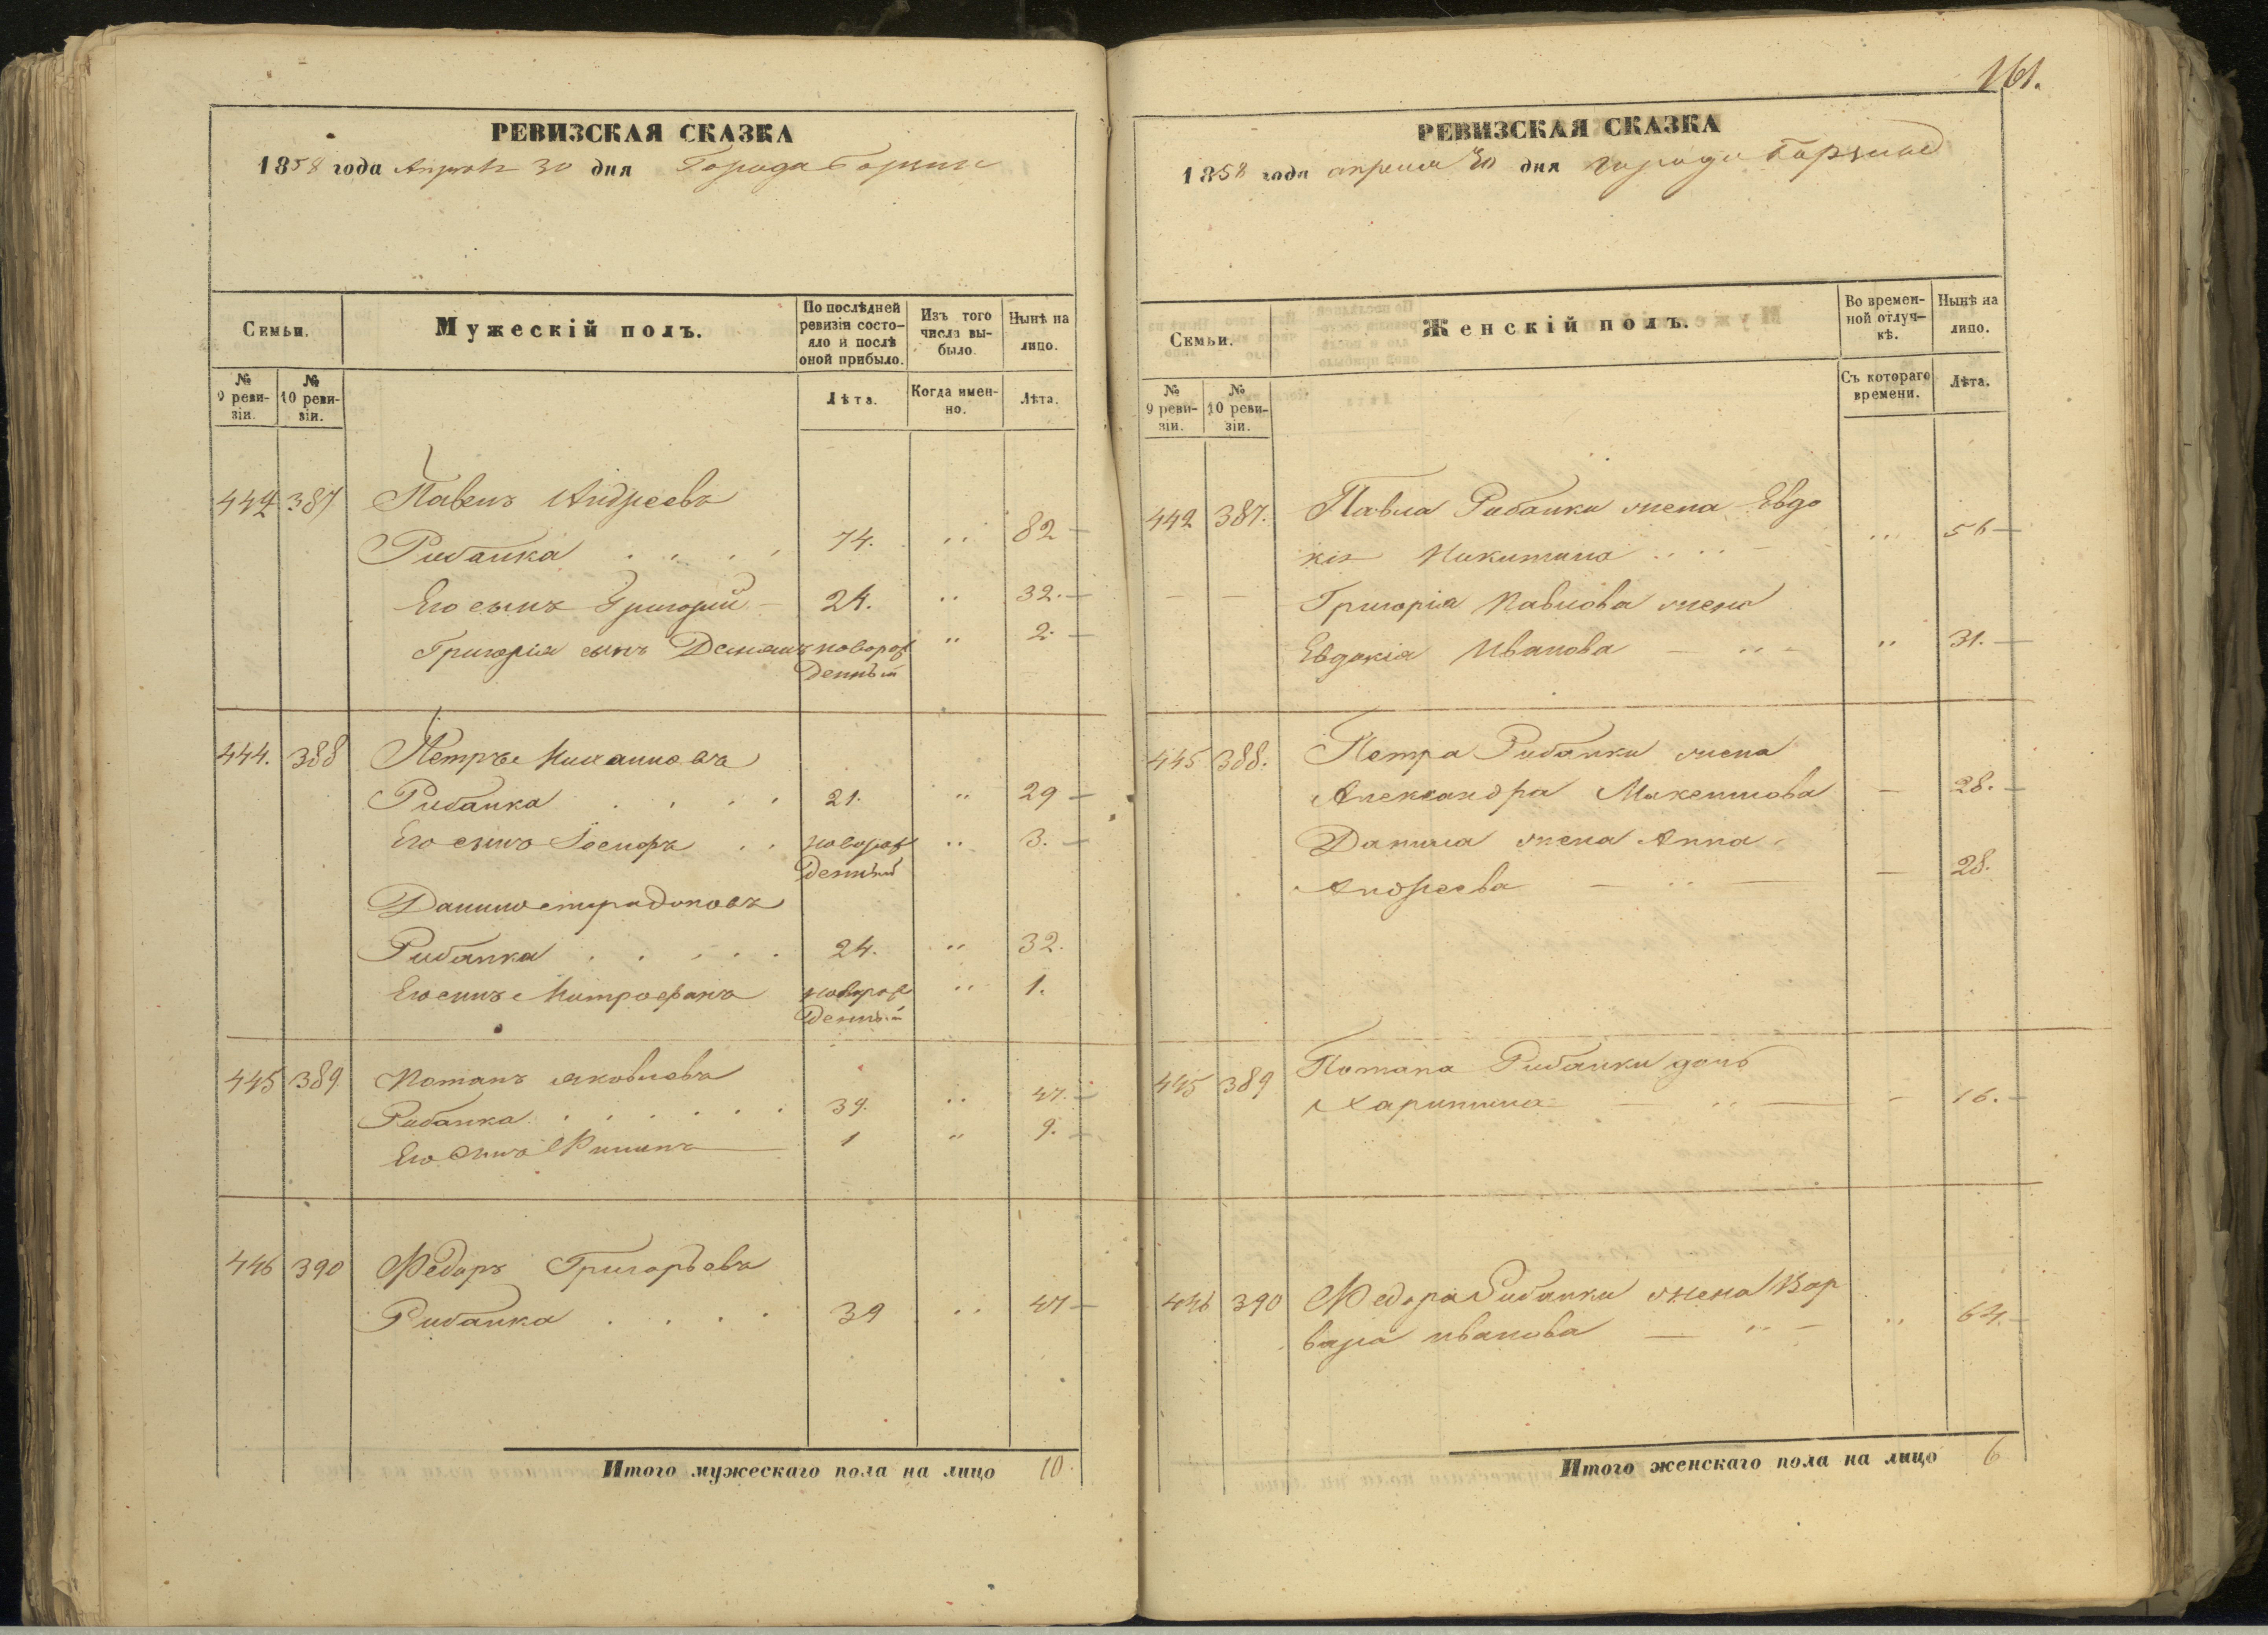 161.
РЕВИЗСКАЯ СКАЗКА
1858 года Апреля 30 дня Города
СЕМЬИ.
Мужескій полъ.
По послѣдней ревизіи состояло и послѣ оной прибыло.
Изъ того числа выбыло.
Нынѣ на лицо.
№ 9 ревизіи.
№ 10 ревизіи.
Лѣта.
Когда именно.
Лѣта.
442 387 Павелъ Андреевъ
Рибалка 74. " 82
Его сынъ Григорій 24. " 32.
Григорія сынъ Демьянъ новорож " 2.
денный
444. 388 Петръ Михайловъ
Рибалка 21. " 29
Его сынъ Іосифъ новорож " 3.
денный
Данило Спиридоновъ
Рибалка 24. " 32.
Его сынъ Митрофанъ новорож " 1.
денный
445 389 Потапъ Яковлевъ
Рибалка 39. " 47.
Его сынъ Филипъ 1 " 9.
446 390 Федоръ Григорьевъ
Рибалка 39 " 47
Итого мужескаго пола на лицо 10.
РЕВИЗСКАЯ СКАЗКА
1858 года апреля 30 дня города
Семьи.
Женскій полъ.
Во временной отлучкѣ.
Нынѣ на лицо.
№ 9 ревизіи.
№ 10 ревизіи.
Съ котораго времени.
Лѣта.
442 387. Павла Рибалки жена Евдо
кія Никитина " 56
Григорія Павлова жена
Евдокія Иванова " 31.
445 388. Петра Рибалки жена
Александра Максимова 28.
Данила жена Анна
Андреева 28.
445 389 Потапа Рибалки дочь
Харитина 16.
446 390 Федора Рибалки жена Вар
вара Иванова " 64.
Итого женскаго пола на лицо 6